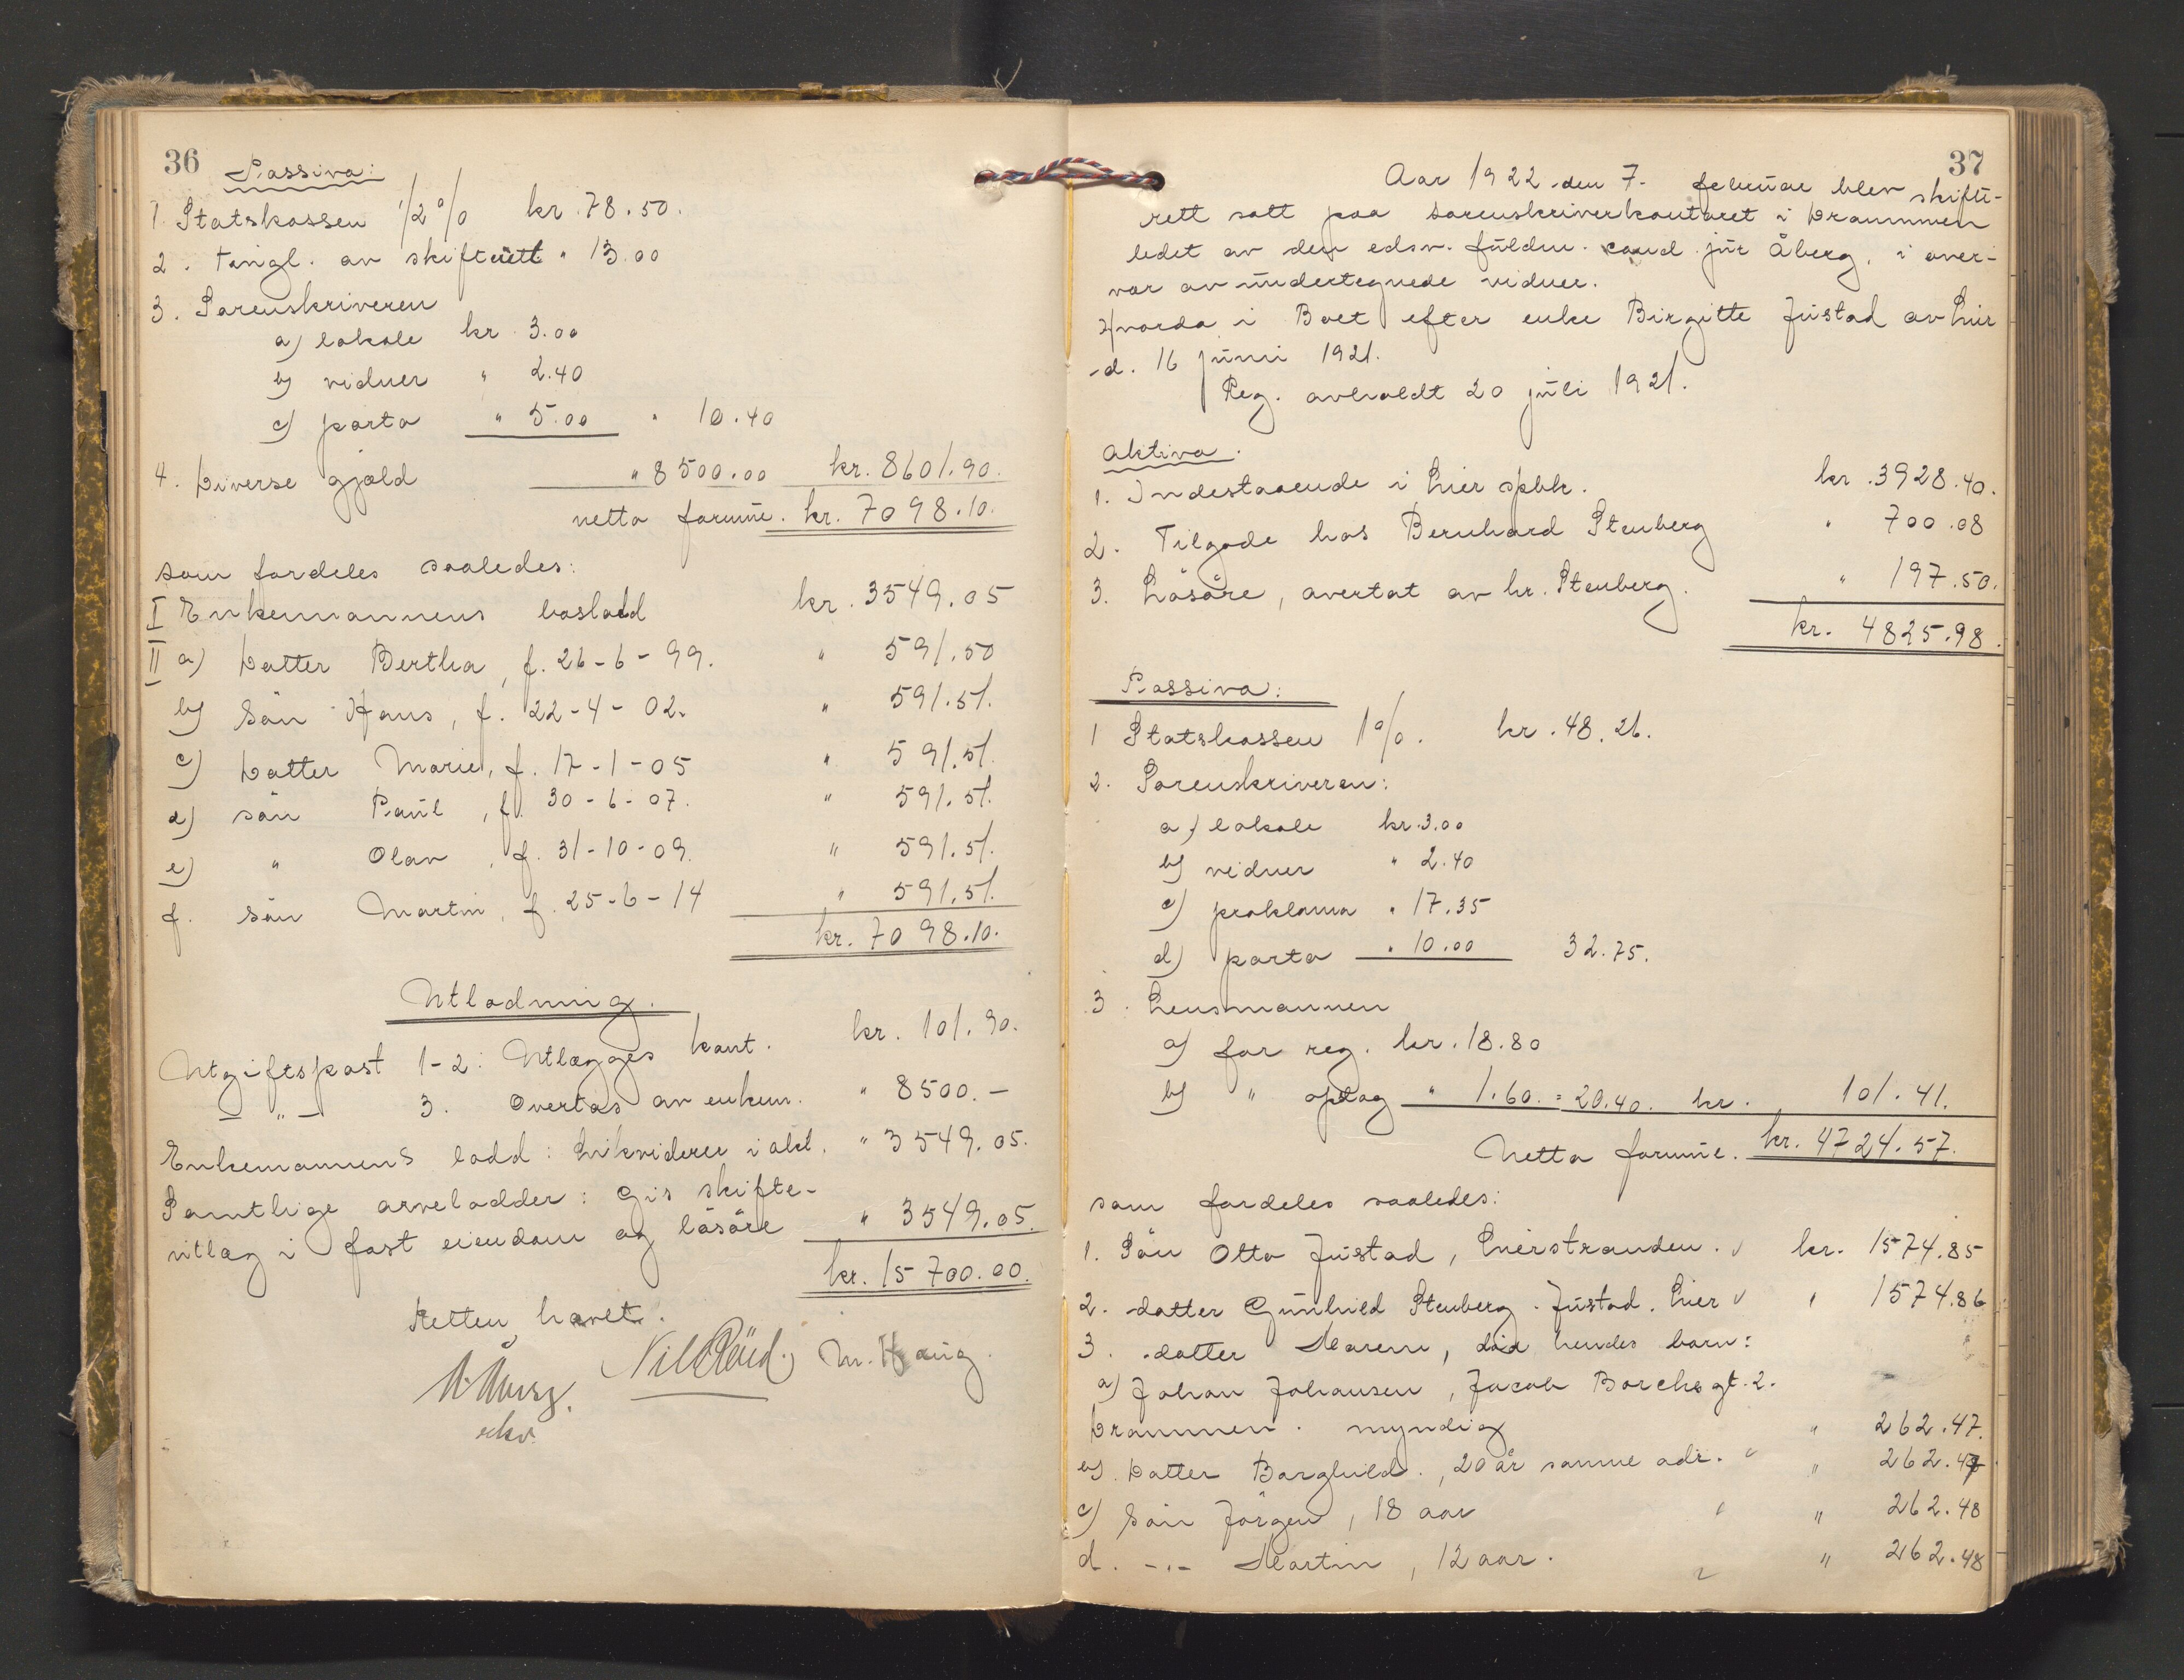 36
Passiva:
1. Statskassen 1/2 % kr. 78.50.
2. tingl. av skifteutl " 13.00
3. Sorenskriveren
a) lokale kr. 3.00
b) vidner " 2.40
c) porto " 5.00 " 10.40
4. Diverse gjæld " 8500.00 kr. 8601.90.
netto formue. kr. 7098.10.
som fordeles saaledes:
I Enkemannens boslodd kr. 3549.05
II a) Datter Bertha, f. 26-6-99. " 591.50
b) Sön Hans, f. 22-4-02. " 591.51.
c) Datter Marie, f. 17-1-05 " 591.51.
d) sön Paul, f. 30-6-07. " 591.51.
e) " Olav, f. 31-10-09. " 591.51.
f. Sön Martin, f. 25-6-14 " 591.51.
kr. 7098.10.
Utlodning.
Utgiftspost 1-2: Utlægges kont. kr. 101.90.
— " — 3. Overtas av enkem. " 8500.-
Enkemannens lodd: Likviderer i akt. " 3549.05.
Samtlige arvelodder: Gis skifte-
utlæg i fast eiendom og lösöre " 3549.05.
kr. 15700.00.
Retten hævet.
M. Haug.
37
Aar 1922 den 7. februar blev skifte-
rett satt paa sorenskriverkontoret i Drammen
ledet av den edsv. fuldm. cand jur Åberg, i over-
vær av undertegnede vidner.
Hvorda i Boet efter enke Birgitte Justad av Lier
d. 16 juni 1921.
Reg. avholdt 20 juli 1921.
Aktiva.
1. Indestaaende i Lier spbk. kr. 3928.40.
2. Tilgode hos Bernhard Stenberg " 700.08
3. Lösöre, overtat av hr. Stenberg. " 197.50.
kr. 4825.98.
Passiva:
1 Statskassen 1%. kr. 48.26.
2. Sorenskriveren:
a) lokale kr. 3.00
b) vidner " 2.40
c) proklama " 17.35
d) porto " 10.00 32.75.
3. Lensmannen
a) for reg. kr. 18.80
b) " optag " 1.60. = 20.40. kr. 101.41.
Netto formue. kr. 4724.57.
som fordeles saaledes:
1. Sön Otto Justad, Lierstranden. kr. 1574.85
2. datter Gunhild Stenberg. Justad. Lier " 1574.86
3. datter Maren, död hendes barn:
a) Johan Johansen, Jacob Borchs gt. 2.
Drammen. myndig " 262.47.
b). Datter Borghild., 20 år samme adr. " 262.47
c) Sön Jörgen, 18 aar " 262.48
d. -"- Martin, 12 aar. " 262.48